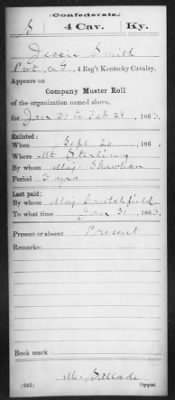 (Confederate.)
S 4 Cav. Ky.
Jessie Smith
Pvt, Co. G, 4 Reg't Kentucky Cavalry.
Appears on
Company Muster Roll
of the organization named above,
for Jan 31 to Feb 28, 1863.
Enlisted:
When Sept 20, 186
Where Mt Sterling
By whom Maj. Shawhan
Period 3 yrs
Last paid:
By whom Maj Crutchfield
To what time 31, 1863.
Present or absent Present
Remarks:
Book mark:
(642) Copyist.